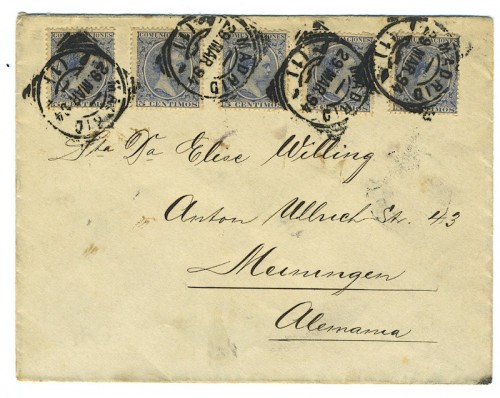 COMUNICACIONES COMUNICACIONES COMUNICACIONES COMUNICACIONES COMUNICACIONES
5 CENTIMOS 5 CENTIMOS 5 CENTIMOS 5 CENTIMOS 5 CENTIMOS
MADRID 29 MAR 94 (11)
MADRID 29 MAR 94
MADRID 29 MAR 94 (11)
MADRID 29 MAR 94 (11)
Sta Da Elise Willing
Anton Ullrich Str. 43
Meiningen
Alemania